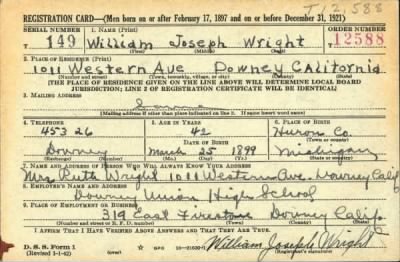 T-12,588
REGISTRATION CARD—(Men born on or after February 17, 1897 and on or before December 31, 1921)
SERIAL NUMBER 1. NAME (Print) ORDER NUMBER
T 149 William Joseph Wright 12588
(First) (Middle) (Last)
2. PLACE OF RESIDENCE (Print)
1011 Western Ave Downey California
(Number and street) (Town, township, village, or city) (County) (State)
[THE PLACE OF RESIDENCE GIVEN ON THE LINE ABOVE WILL DETERMINE LOCAL BOARD
JURISDICTION; LINE 2 OF REGISTRATION CERTIFICATE WILL BE IDENTICAL]
3. MAILING ADDRESS
Same
[Mailing address if other than place indicated on line 2. If same insert word same]
4. TELEPHONE 5. AGE IN YEARS 6. PLACE OF BIRTH
453 26 42 Huron Co.
DATE OF BIRTH (Town or county)
Downey March 25 1899 Michigan
(Exchange) (Number) (Mo.) (Day) (Yr.) (State or country)
7. NAME AND ADDRESS OF PERSON WHO WILL ALWAYS KNOW YOUR ADDRESS
Mrs Ruth Wright 1011 Western Ave. Downey Calif
8. EMPLOYER'S NAME AND ADDRESS
Downey Union High School
9. PLACE OF EMPLOYMENT OR BUSINESS
319 East Firestone Downey Calif.
(Number and street or R. F. D. number) (Town) (County) (State)
I AFFIRM THAT I HAVE VERIFIED ABOVE ANSWERS AND THAT THEY ARE TRUE.
D. S. S. Form 1
(Revised 1-1-42) (over) William Joseph Wright
(Registrant's signature)